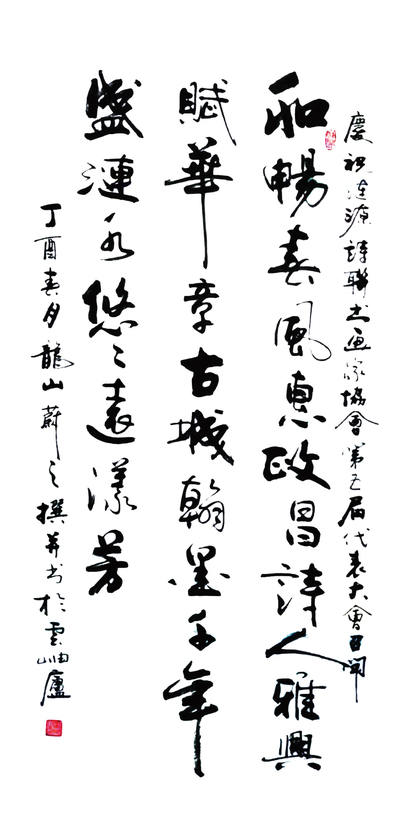 慶祝漣源詩聯书畫家協會第五届代表大會召開
和暢春風惠政昌詩人雅興
賦華章古城翰墨千年
盛漣水悠〻遠漾芳
丁酉春月龍山蔚之撰并书於雲岫廬